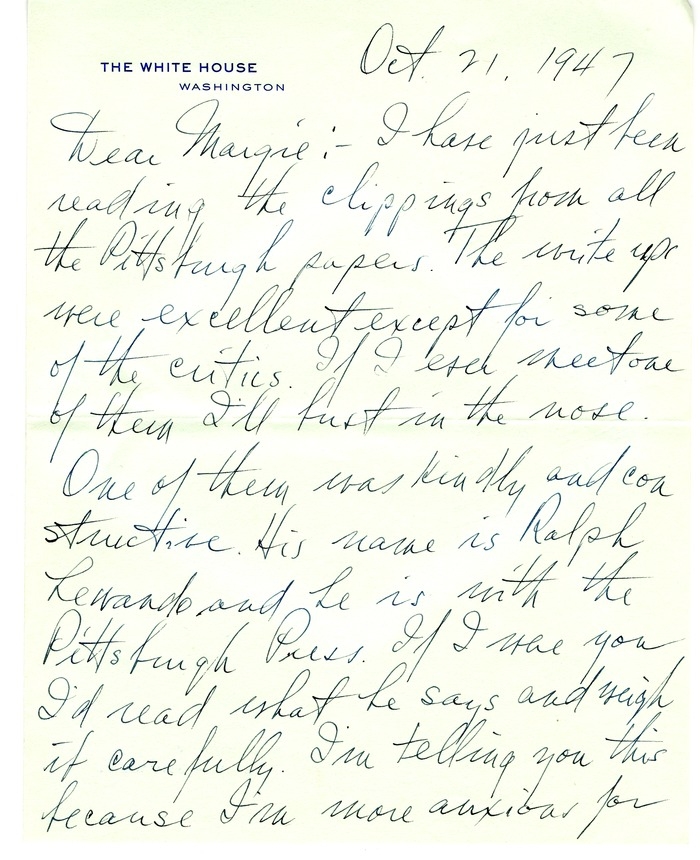 THE WHITE HOUSE
WASHINGTON
Oct. 21, 1947
Dear Margie:- I have just been
reading the clippings from all
the Pittsburgh papers. The write ups
were excellent except for some
of the critics. If I ever meet one
of them I'll bust in the nose.
One of them was kindly and con
structive. His name is Ralph
Lewando and he is with the
Pittsburgh Press. If I were you
I'd read what he says and weigh
it carefully. I'm telling you this
because I'm more anxious for